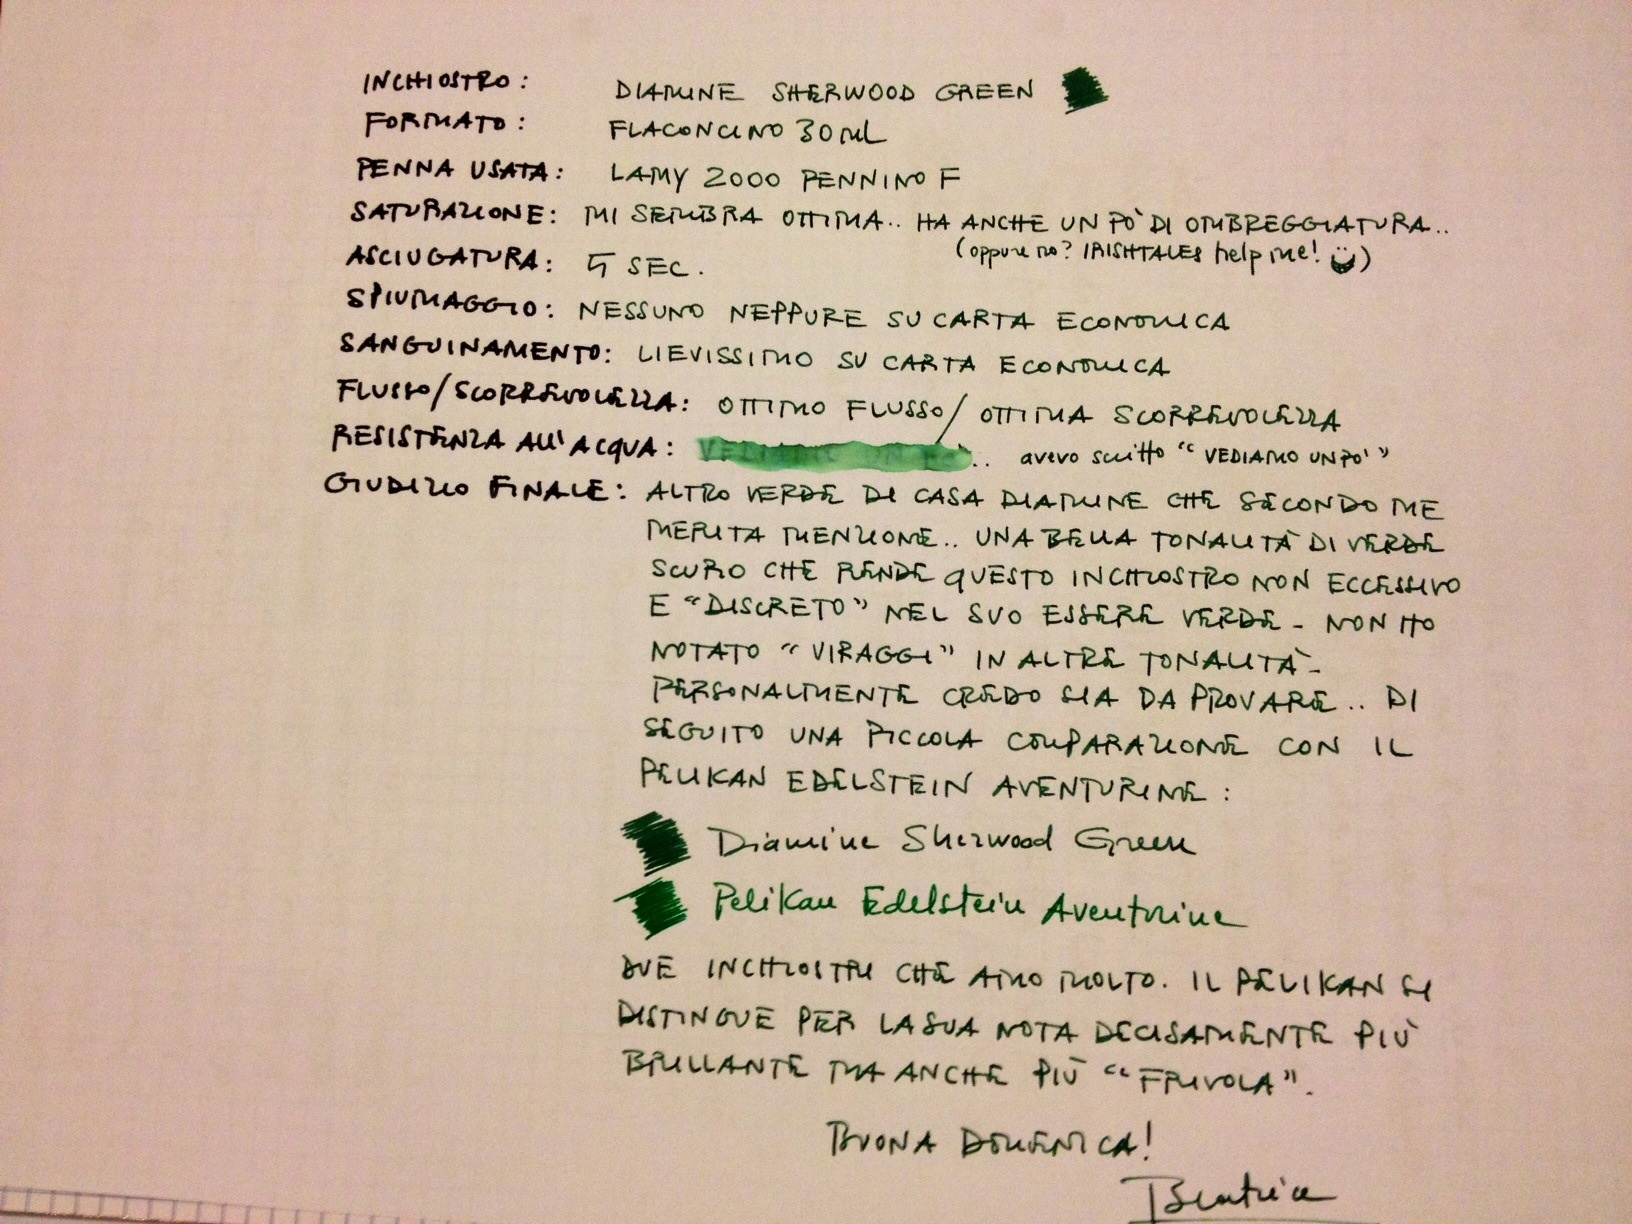 INCHIOSTRO: DIAMINE SHERWOOD GREEN
FORMATO: FLACONCINO 30 mL
PENNA USATA: LAMY 2000 PENNINO F
SATURAZIONE: MI SEMBRA OTTIMA.. HA ANCHE UN PO' DI OMBREGGIATURA..
(oppure no? IRISHTALES help me!)
ASCIUGATURA: 5 SEC.
SPIUMAGGIO: NESSUNO NEPPURE SU CARTA ECONOMICA
SANGUINAMENTO: LIEVISSIMO SU CARTA ECONOMICA
FLUSSO/SCORREVOLEZZA: OTTIMO FLUSSO/ OTTIMA SCORREVOLEZZA
RESISTENZA ALL'ACQUA: VEDIAMO UN PO'.. avevo scritto "VEDIAMO UN PO'"
GIUDIZIO FINALE: ALTRO VERDE DI CASA DIAMINE CHE SECONDO ME
MERITA MENZIONE.. UNA BELLA TONALITÀ DI VERDE
SCURO CHE RENDE QUESTO INCHIOSTRO NON ECCESSIVO
E "DISCRETO" NEL SUO ESSERE VERDE - NON HO
NOTATO "VIRAGGI" IN ALTRE TONALITÀ -
PERSONALMENTE CREDO SIA DA PROVARE.. DI
SEGUITO UNA PICCOLA COMPARAZIONE CON IL
PELIKAN EDELSTEIN AVENTURINE:
Diamine Sherwood Green
Pelikan Edelstein Aventurine
DUE INCHIOSTRI CHE AMO MOLTO. IL PELIKAN SI
DISTINGUE PER LA SUA NOTA DECISAMENTE PIÙ
BRILLANTE MA ANCHE PIÙ "FRIVOLA".
BUONA DOMENICA!
Beatrice